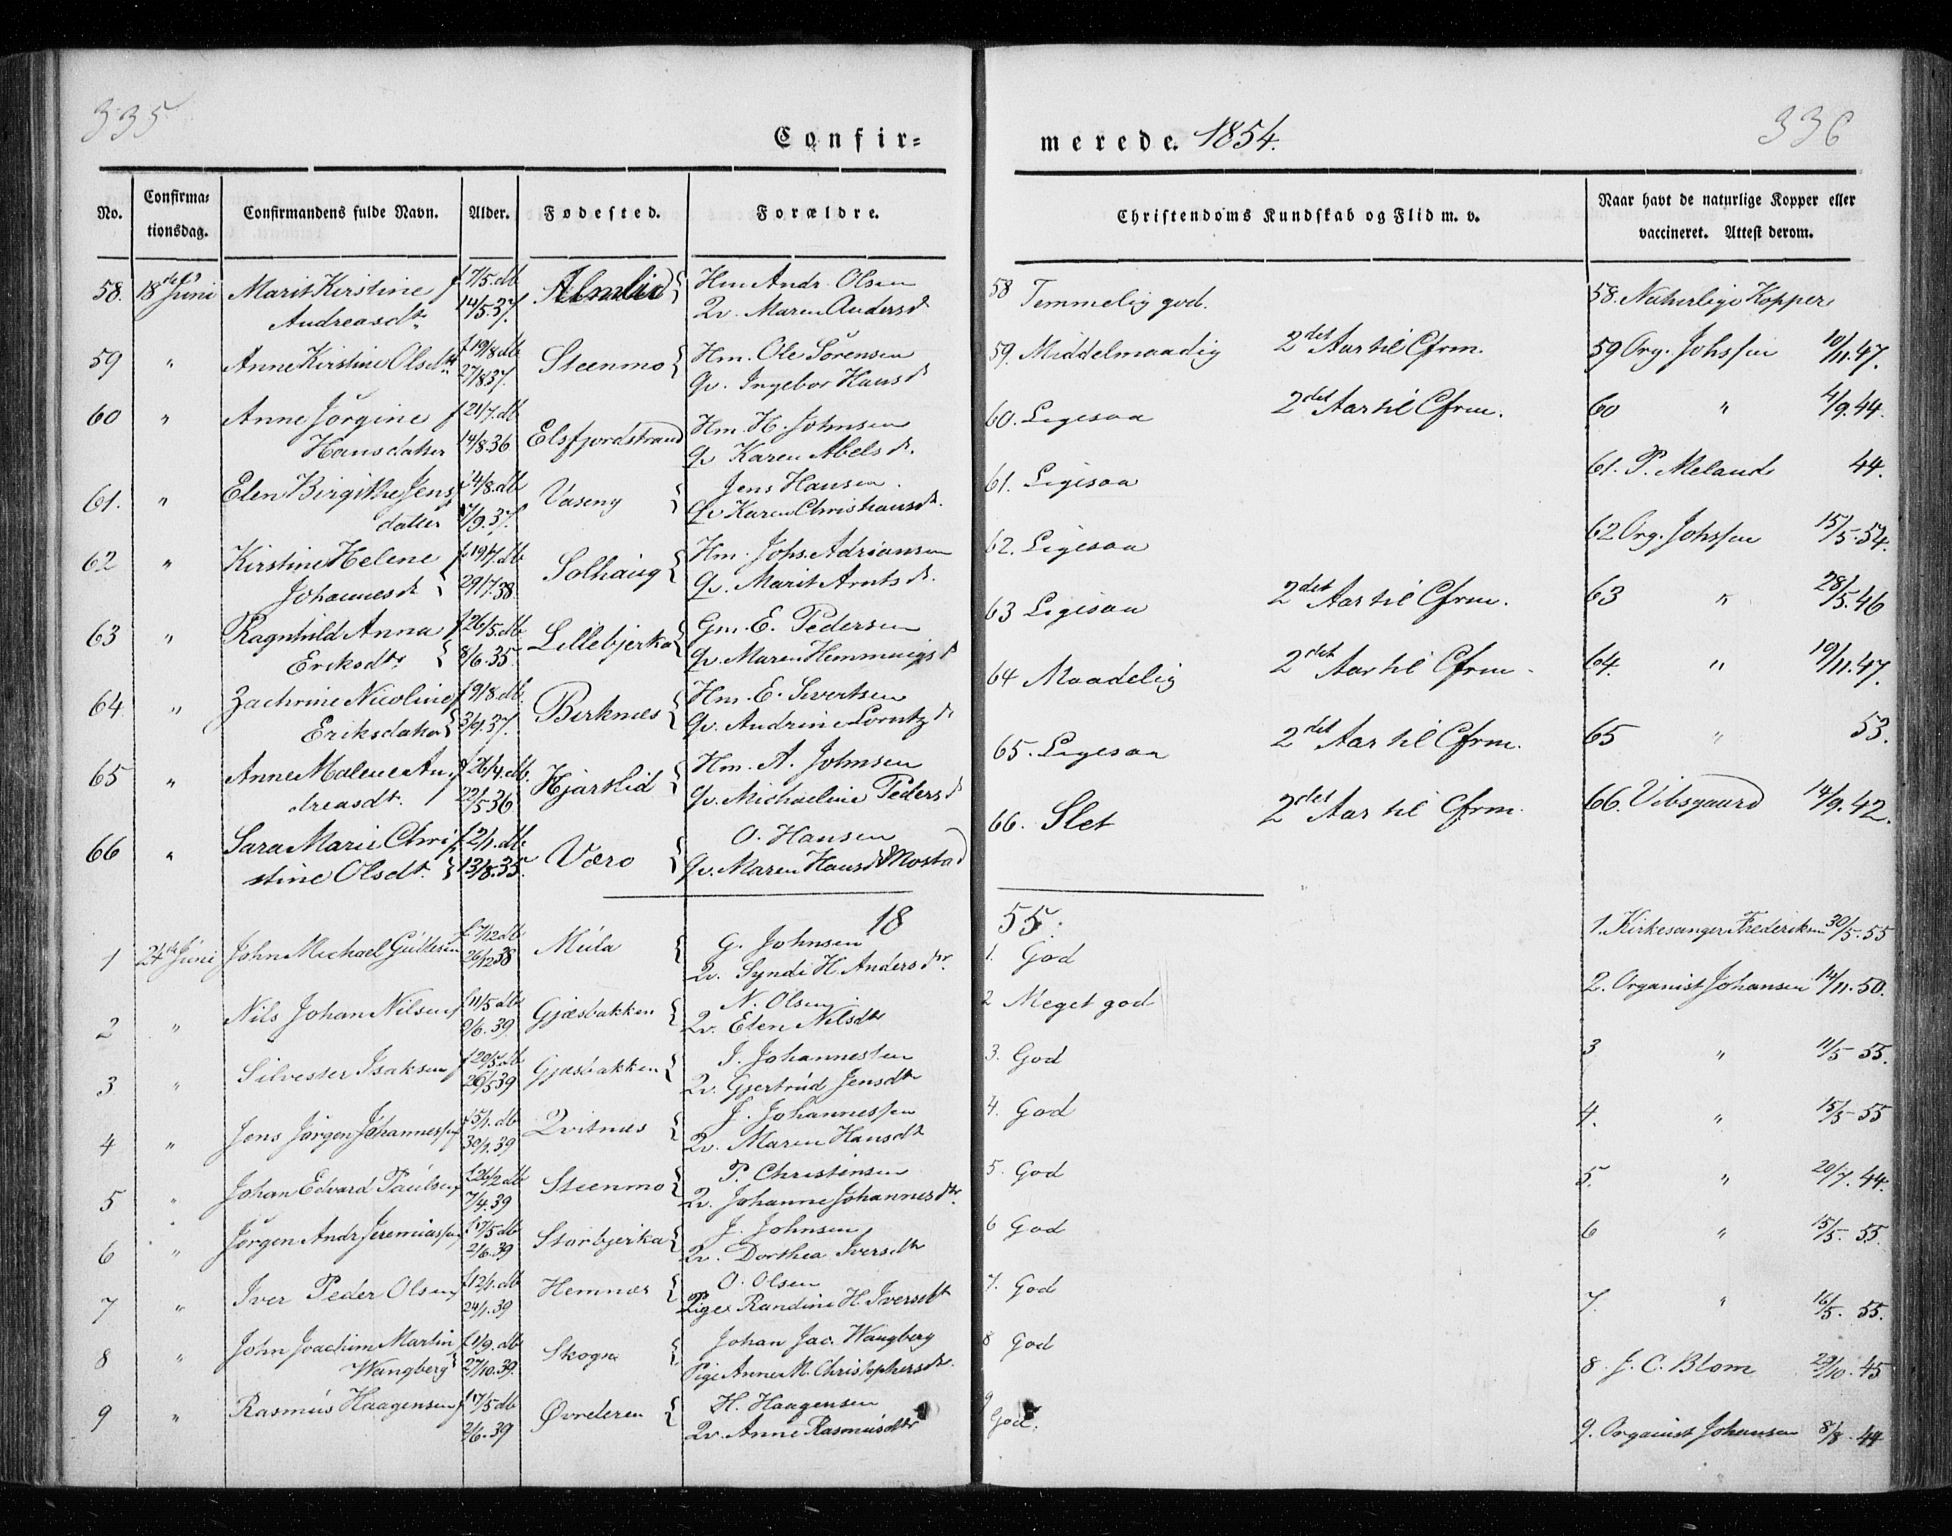 335
336
Confir=
merede. 1854.
No.
Confirma=
tionsdag.
Confirmandens fulde Navn.
Alder.
Fødested.
Forældre.
Christendoms Kundskab og Flid m. v.
Naar havt de naturlige Kopper eller
vaccineret. Attest derom.
58. 18de Juni Marit Kirstine f 7/5. db Almlid { Hm Andr. Olsen
Andreasdt. 14/5 37. Qv. Maren Andersd.
58 Temmelig god. 58. Naturlige Kopper
59 " Anne Kirstine Olsdt f 19/8 db Steenmo { Hm. Ole Sørensen
27/8 37. Qv. Ingebor Hansd
59. Middelmaadig 2det Aar til Cfrm. 59 Org. Johssen 10/11. 47.
60 " Anne Jørgine f 21/7. db Elsfjordstrand Hm. H. Johnsen
Hansdatter 14/8. 36 Qv Karen Abelsd.
60. Ligesaa 2det Aar til Cfrm. 60 " 4/9. 44.
61. " Elen Birgithe Jens f 24/8. db Vaseng { Jens Hansen.
datter 7/9. 37. Qv Karen Christiansd.
61. Ligesaa 61. P. Meland 44.
62 " Kirstine Helene f 19/7. db Solhaug { Hm. Johs Adriansen
Johannesd { 29/7. 38 Qv. Marit Arntsd.
62. Ligesaa 62 Org. Johssen 15/5. 54.
63 " Ragnhild Anna f 26/5. db Lillebjerka { Gm. E. Pedersen
Eriksdt. { 8/6. 35. Qv. Maren Hemmingsd
63 Ligesaa 2det Aar til Cfrm. 63 " 28/5. 46
64 " Zachrine Nicoline f 9/8. db. Birknes { Hm. E. Sivertsen
Eriksdatter { 3/9. 37. Qv. Andrine Lorntzd
64 Maadelig 2det Aar til Cfrm. 64. " 19/11. 47.
65 " Anne Malene An f 26/4. db. Hjartlid { Hm. A. Johnsen
dreasdt. 22/5 36 Qv. Michaeline Pedersd
65. Ligesaa 2det Aar til Cfrm. 65 " 53.
66 " Sara Marie Chri f 2/1. db. Værø { O. Hansen
stine Olsdt. { 13/8. 35. Qv. Maren Hansd Mostad
66. Slet 2det Aar til Cfrm. 66. Vibsgaard 14/9. 42.
18
55.
1 24de Juni John Michael Gullesen f 7/12 db Mula { G. Johnsen
26/12 38 Qv. Syndi H. Andersdtr.
1. God 1. Kirkesanger Frederiksen 30/5. 55
2 " Nils Johan Nilsen f 11/5 db Gjæsbakken { N. Olsen
2/6. 39 Qv. Elen Nilsdt
2 Meget god 2. Organist Johansen 14/11. 50.
3 " Silvester Isaksen f 20/5. db Gjæsbakken { I. Johannessen
26/5 39 Qv. Gjertrud Jensdt
3. God 3 " 11/5 55.
4 " Jens Jørgen Johannessen f 5/1. db Qvitnæs { J. Johannessen
30/1. 39 Qv. Maren Hansdt
4. God 4. " 15/5 55
5 " Johan Edvard Paulsen f 26/2 db Steenmo { P. Christensen
7/4. 39 Qv. Johanne Johannesdtr.
5. God 5. " 20/7. 44.
6 " Jørgen Andr Jeremiassen f 17/5 db Storbjerka { J. Johnsen
2/6. 39 Qv. Dorthea Iversdt
6 God 6 " 15/5. 55.
7 " Iver Peder Olsen f 12/1. db Hemnæs { O. Olsen
24/1. 39 Pige Randine H. Iversdt
7. God 7. " 16/5. 55.
8 " John Joachim Martin f 1/9. db Skogn { Johan Jac. Wangberg
Wangberg { 27/10. 39. Pige Anne M. Christophersdt.
8 God 8. J. C. Blom 29/10. 45
9 " Rasmus Haagensen f 17/5 db Øvrderen { H. Haagensen
2/6. 39 Qv. Anne Rasmusdtr
9 God. 9. Organist Johansen 8/8. 44